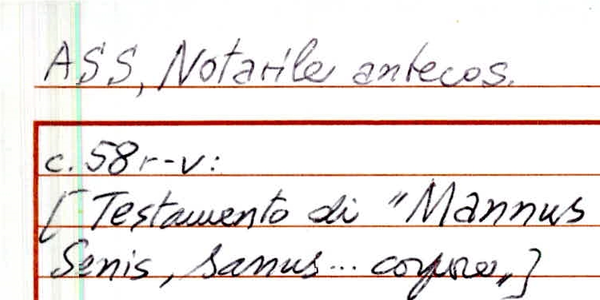 ASS, Notarile antecos.
c. 58r-v:
[Testamento di "Mannus
Senis, sanus... corpore"]